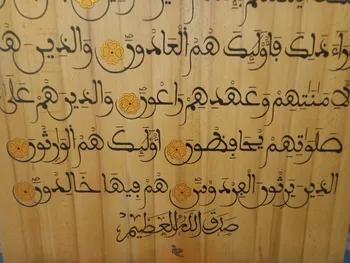 وراء ذلك فأوليك هم العادون والذين هم
لأمنتهم وعهدهم راعون والذين هم على
صلوتهم يحافظون أوليك هم الوارثون
الذين يرثون الفردوس هم فيها خالدون
صدق الله العظيم